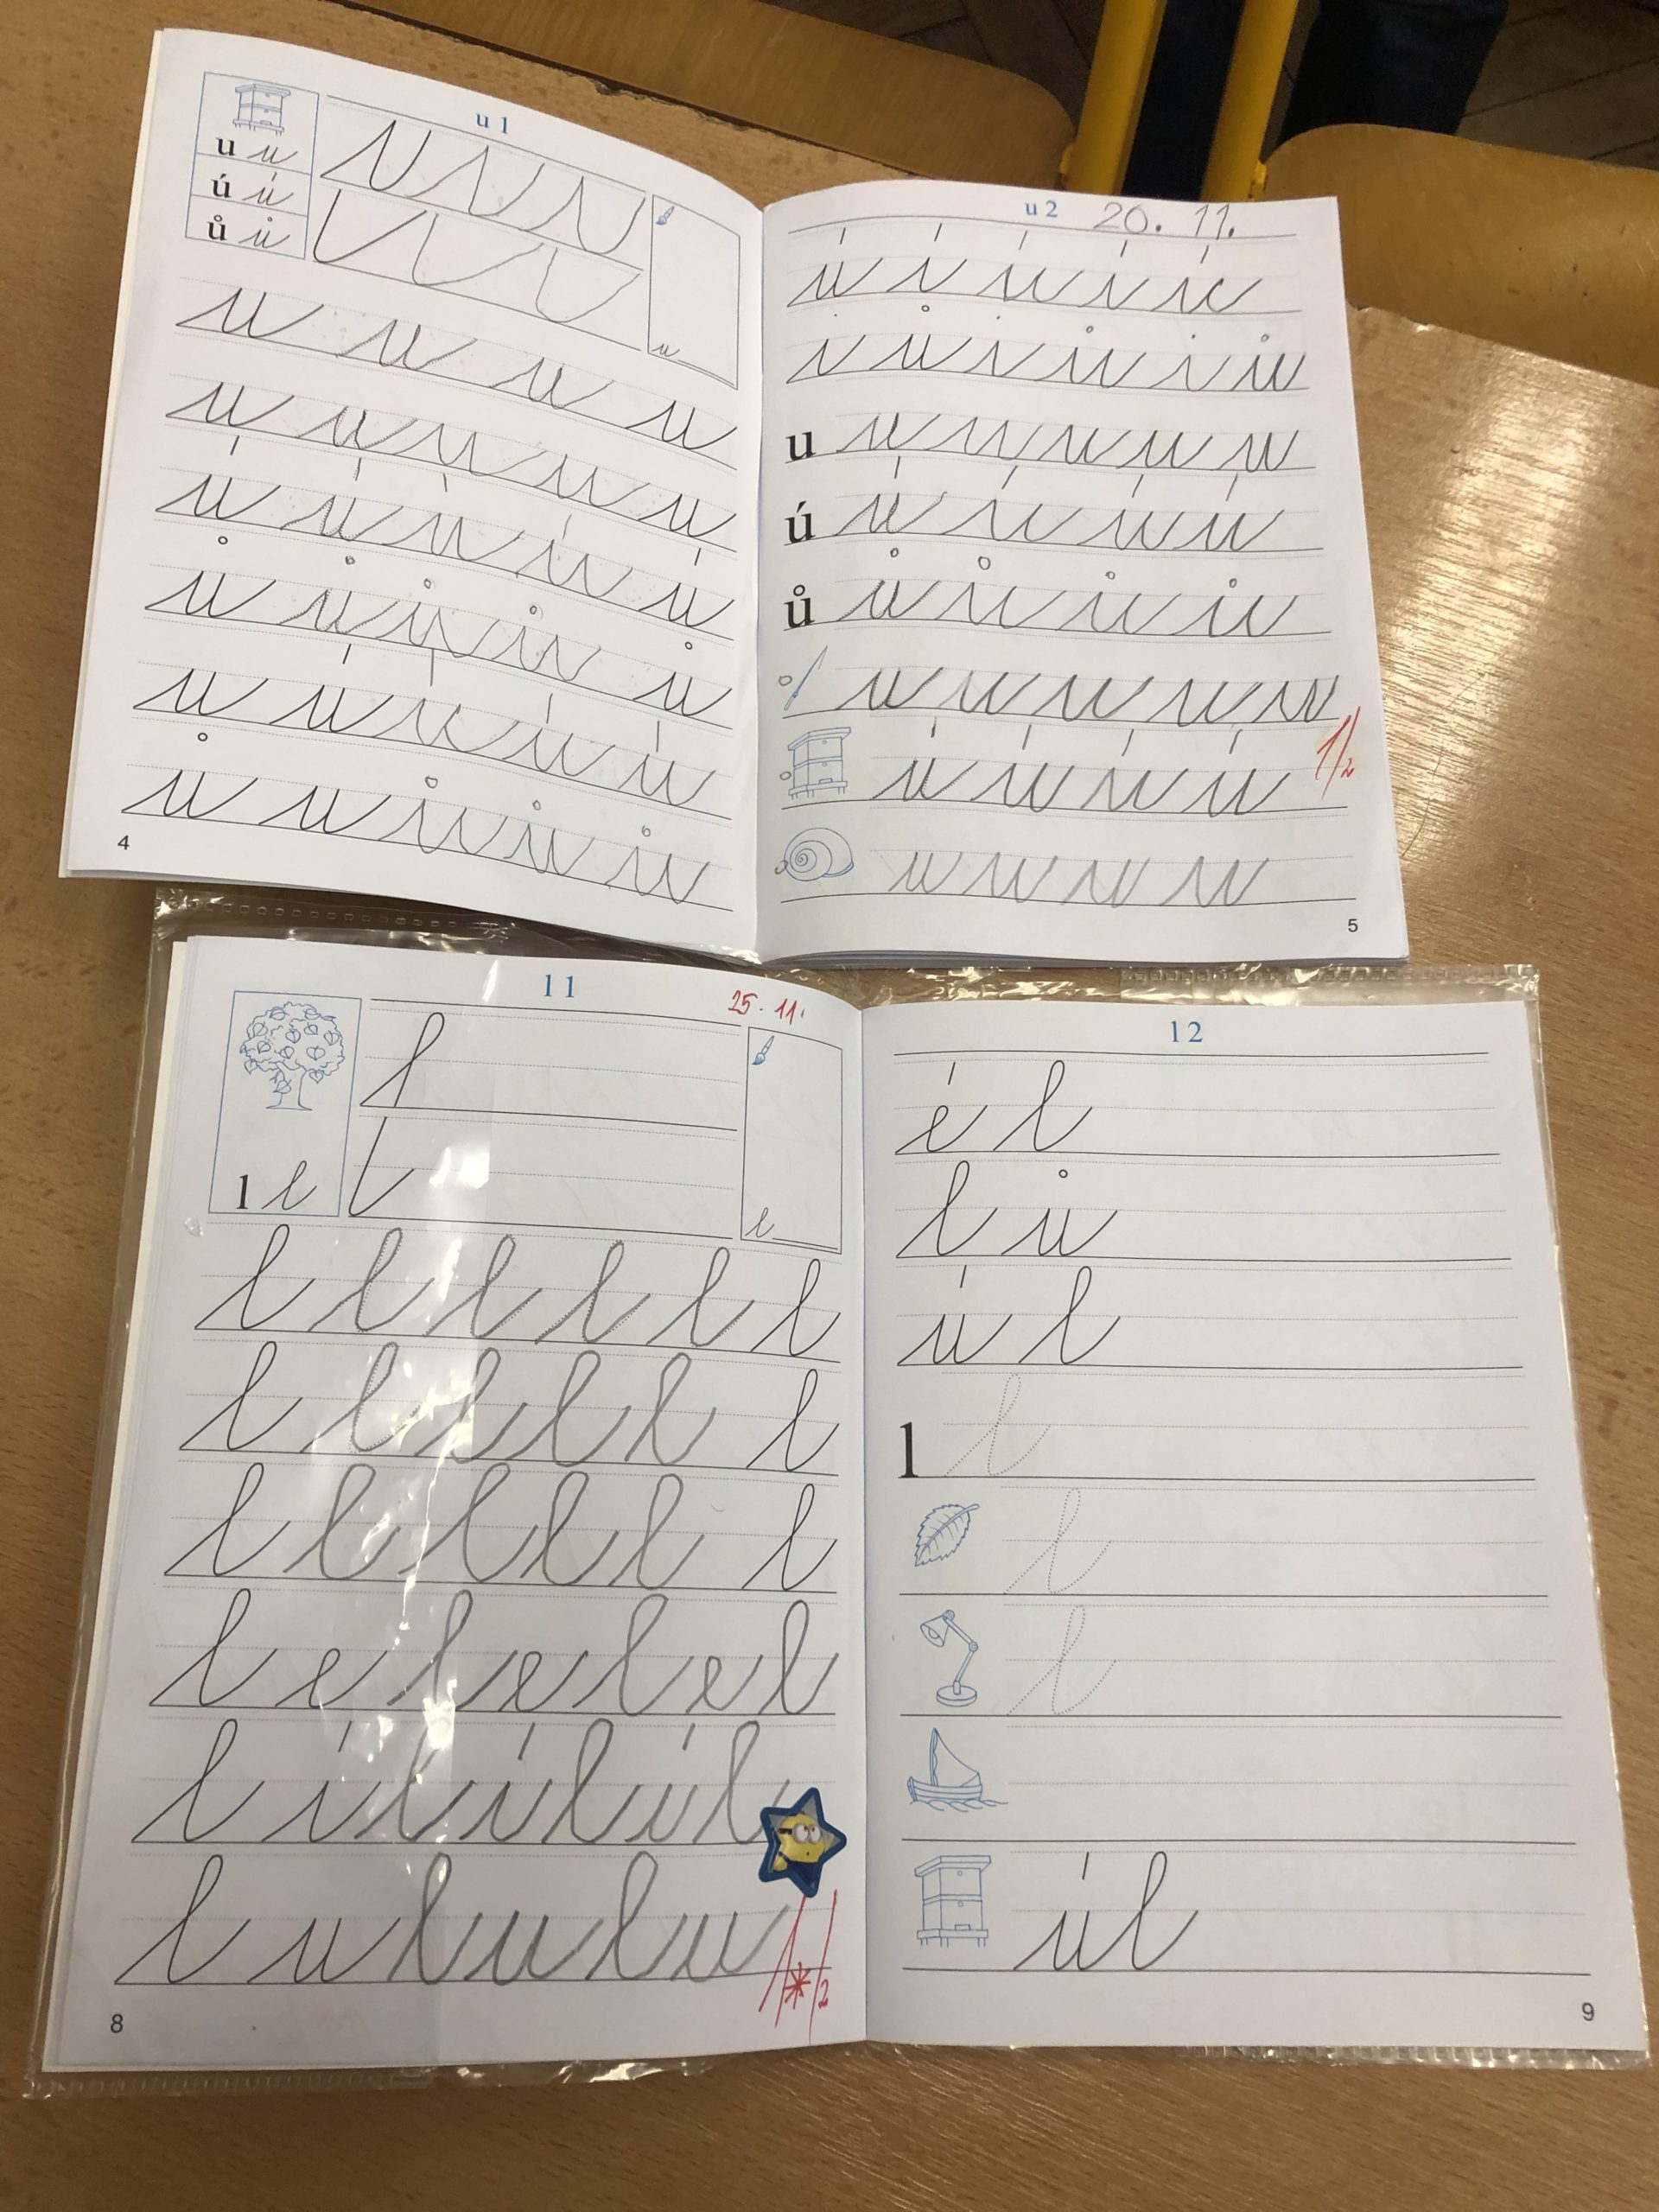 u 1
u u
ú ú
ů ů
u
u u u u
u u u u u
ú ú ú ú ú
ů ů ů ů ů
u ú ú ú ú
ů u ů ů ů
4
u 2 20. 11.
ú í ú í ú
i ů i ů i ů
u u u u u u
ú ú ú ú ú
ů ů ů ů ů
u u u u u
ú ú ú ú
u u u u
1/2
5
l 1 25. 11.
l l
l
l l l l l l
l l l l l l
l l l l l l
l e l e l e l
l í l í l í l
l u l u l u
1*/2
8
l 2
é l
l ů
ú l
l l
l
l
ú l
9